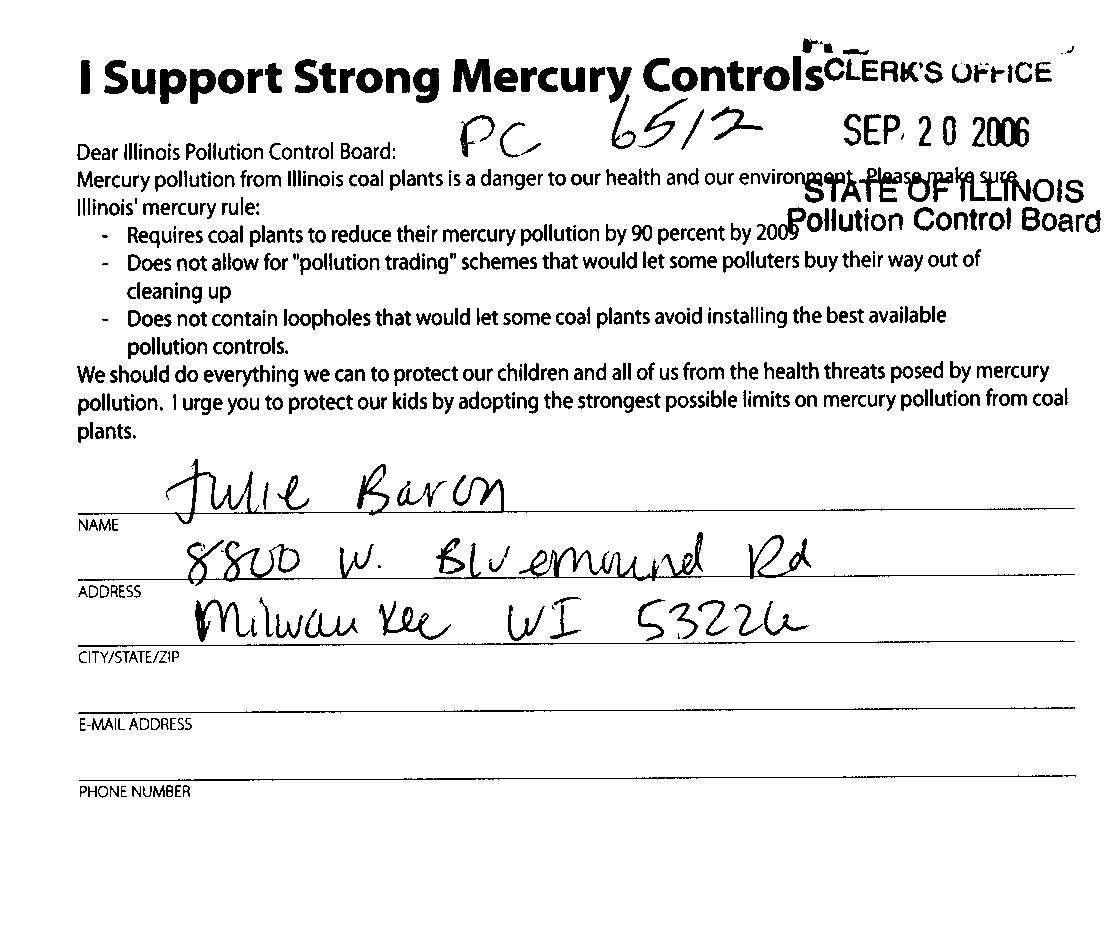 I Support Strong Mercury Controls
CLERK'S OFFICE
PC 6512
SEP. 20 2006
STATE OF ILLINOIS
Pollution Control Board
Dear Illinois Pollution Control Board:
Mercury pollution from Illinois coal plants is a danger to our health and our environment. Please make sure
Illinois' mercury rule:
- Requires coal plants to reduce their mercury pollution by 90 percent by 2009
- Does not allow for "pollution trading" schemes that would let some polluters buy their way out of
cleaning up
- Does not contain loopholes that would let some coal plants avoid installing the best available
pollution controls.
We should do everything we can to protect our children and all of us from the health threats posed by mercury
pollution. I urge you to protect our kids by adopting the strongest possible limits on mercury pollution from coal
plants.
Julie Baron
NAME
8800 W. Bluemound Rd
ADDRESS
Milwaukee WI 53226
CITY/STATE/ZIP
E-MAIL ADDRESS
PHONE NUMBER